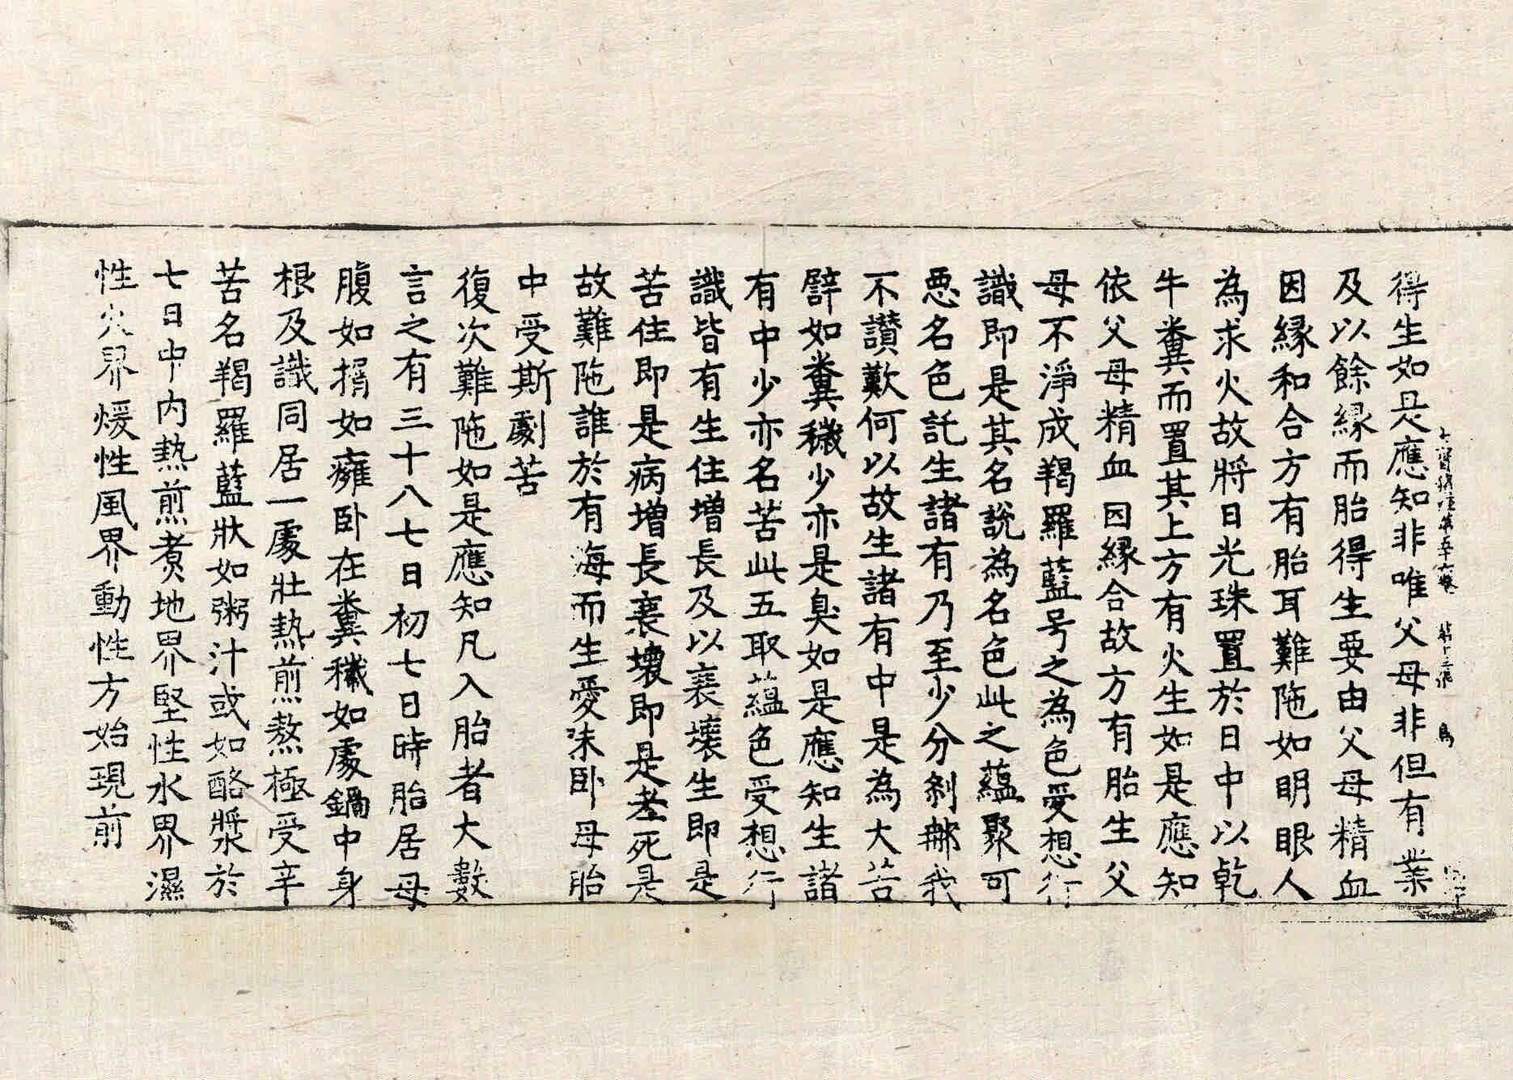 得生如是應知非唯父母非但有業
大寶積經第五十六卷 第十三張 鳥
及以餘緣而胎得生要由父母精血
因緣和合方有胎耳難陁如明眼人
為求火故將日光珠置於日中以乾
牛糞而置其上方有火生如是應知
依父母精血因緣合故方有胎生父
母不淨成羯羅藍号之為色受想行
識即是其名說為名色此之蘊聚可
惡名色託生諸有乃至少分剎那我
不讚歎何以故生諸有中是為大苦
譬如糞穢少亦是臭如是應知生諸
有中少亦名苦此五取蘊色受想行
識皆有生住增長及以衰壞生即是
苦住即是病增長衰壞即是老死是
故難陁誰於有海而生愛味卧母胎
中受斯劇苦
復次難陁如是應知凡入胎者大數
言之有三十八七日初七日時胎居母
腹如榍如癰卧在糞穢如處鍋中身
根及識同居一處壯熱煎熬極受辛
苦名羯羅藍狀如粥汁或如酪漿於
七日中內熱煎煮地界堅性水界濕
性火界煖性風界動性方始現前